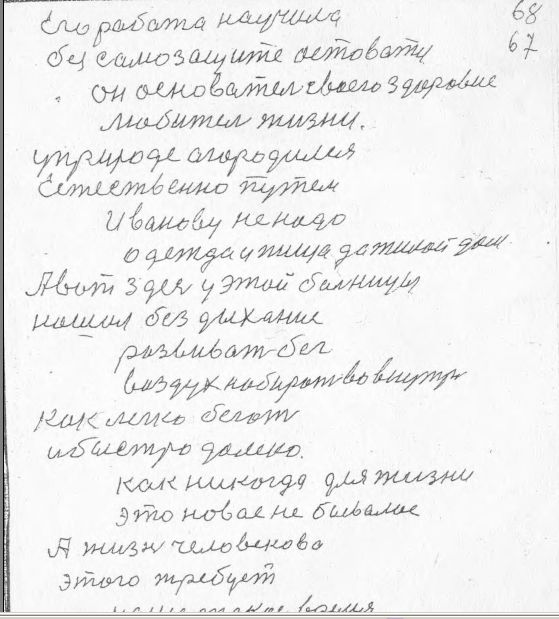 68
67
Его работа научила
без самозащите остоватц
он основател своего здоровие
любител жизни.
уприроде огородился
Естественно путем
Иванову не надо
одежда и пища да жилой дом.
А вот здея у этой балницы
нашол без дыхание
развиват бег
воздух набират во внутрь
Как легко бегат
и быстро далеко.
как никогда для жизни
это новае не бывалое
А жизн человекова
этого требует
наше такое время